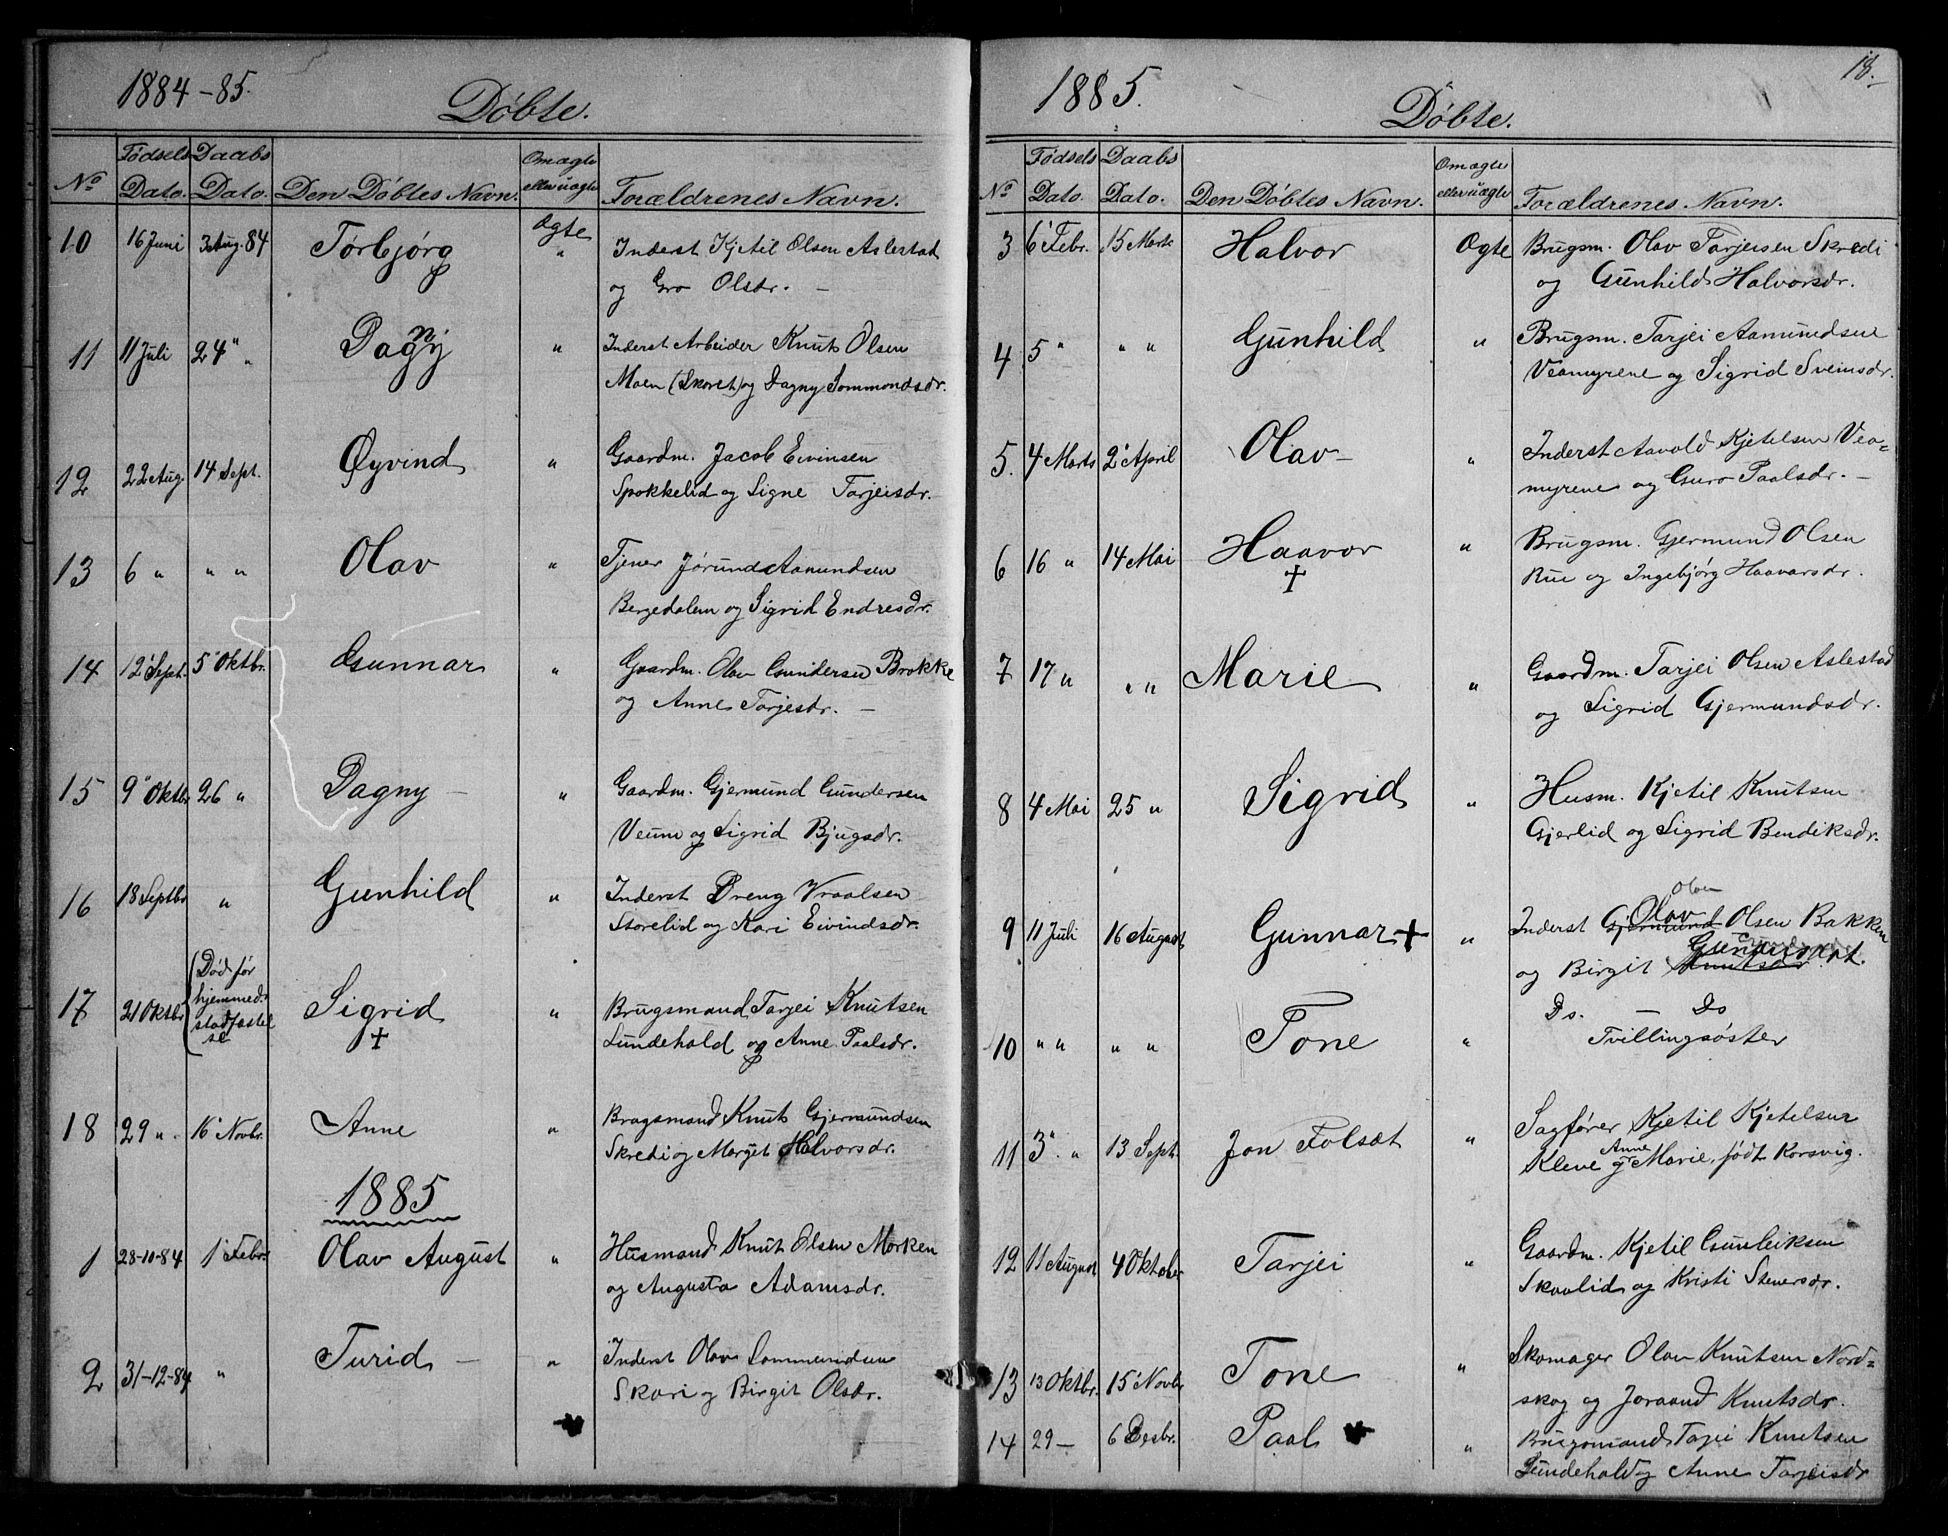 1884-85.
Døbte.
No
Fødsels Dato.
Daabs Dato.
Den Døbtes Navn.
Om ægte eller uægte
Forældrenes Navn.
10 16 Juni 3 Aug. 84 Tørbjørg Ægte " Inderst Kjetil Olsen Aslestad
og Gro Olsdr. -
11 11 Juli 24 " " Dagny " Inderst Arbeider Knut Olsen
Moen (Skoret) og Dagny Sommondsdr.
12 22 Aug. 14 Sept. Øyvind " Gaardm. Jacob Eivinsen
Spokkelid og Signe Tarjeisdr.
13 6 " " " Olav " Tjener Jørund Aamundsen
Bergedalen og Sigrid Endresdr.
14 12 Sept. 5 Oktbr. Gunnar " Gaardm. Olav Gundersen Brokke
og Anne Tarjesdr. -
15 9 Oktbr 26 " Dagny - " Gaardm. Gjermund Gundersen
Veum og Sigrid Bjugsdr.
16 18 Septbr " Gunhild " Inderst Dreng Vraalsen
Storelid og Kari Eivindsdr.
17 21 Oktbr (Død før
hjemmed.
stadfæstel
se Sigrid + " Brugsmand Tarjei Knutsen
Lundehold og Anne Paalsdr.
18 29 " 16 Novbr. Anne " Brugsmand Knut Gjermundsen
Skredi og Marget Halvorsdr.
1885
1 28-10-84 1 Febr. Olav August " Husmand Knut Olsen Morken
og Augusta Adamsdr.
2 31-12-84 " Turid - " Inderst Olav Sommundsen
Skori og Birgit Olsdr.
1885.
18.
Døbte.
No
Fødsels Dato.
Daabs Dato.
Den Døbtes Navn.
Om ægte eller uægte
Forældrenes Navn.
3 6 Febr. 15 Marts Halvor Ægte Brugsm. Olav Tarjeisen Skredi
og Gunhild Halvorsdr.
4 5 " " " Gunhild " Brugsm. Tarjei Aamundsen
Veamyrene og Sigrid Sveinsdr.
5. 4 Marts 2 April Olav - " Inderst Aavold Kjetelsen Vea=
myrene og Guro Paalsdr. -
6 16 " 14 Mai Haavor + " Brugsm. Gjermund Olsen
Rue og Ingebjørg Haavarsdr.
7 17 " " " Marie " Gaardm. Tarjei Olsen Aslestad
og Sigrid Gjermundsdr.
8 4 Mai 25 " Sigrid " Husm. Kjetil Knutsen
Gjerlid og Sigrid Bendiksdr.
9 11 Juli 16 August Gunnar + " Inderst Gjermund Olav Olav Olsen Bakken
og Birgit Knutsdr
10 " " " " Tone " Ds. - Do
Tvillingsøster
11 3 " " 13 Sept. Jon Folsæt " Sagfører Kjetil Kjetelsen
Kleve og Anne Marie, født Korsvig.
12 11 August 4 Oktober Tarjei " Gaardm. Kjetil Gunleiksen
Skaalid og Kristi Stenersdr.
13 13 Oktbr. 15 Novbr Tone " Skomager Olav Knutsen Nord=
skog og Joraand Knutsdr.
14 29 - 6 Desbr. Paal " Brugsmand Tarjei Knutsen
Lundehold og Anne Tarjeisdr